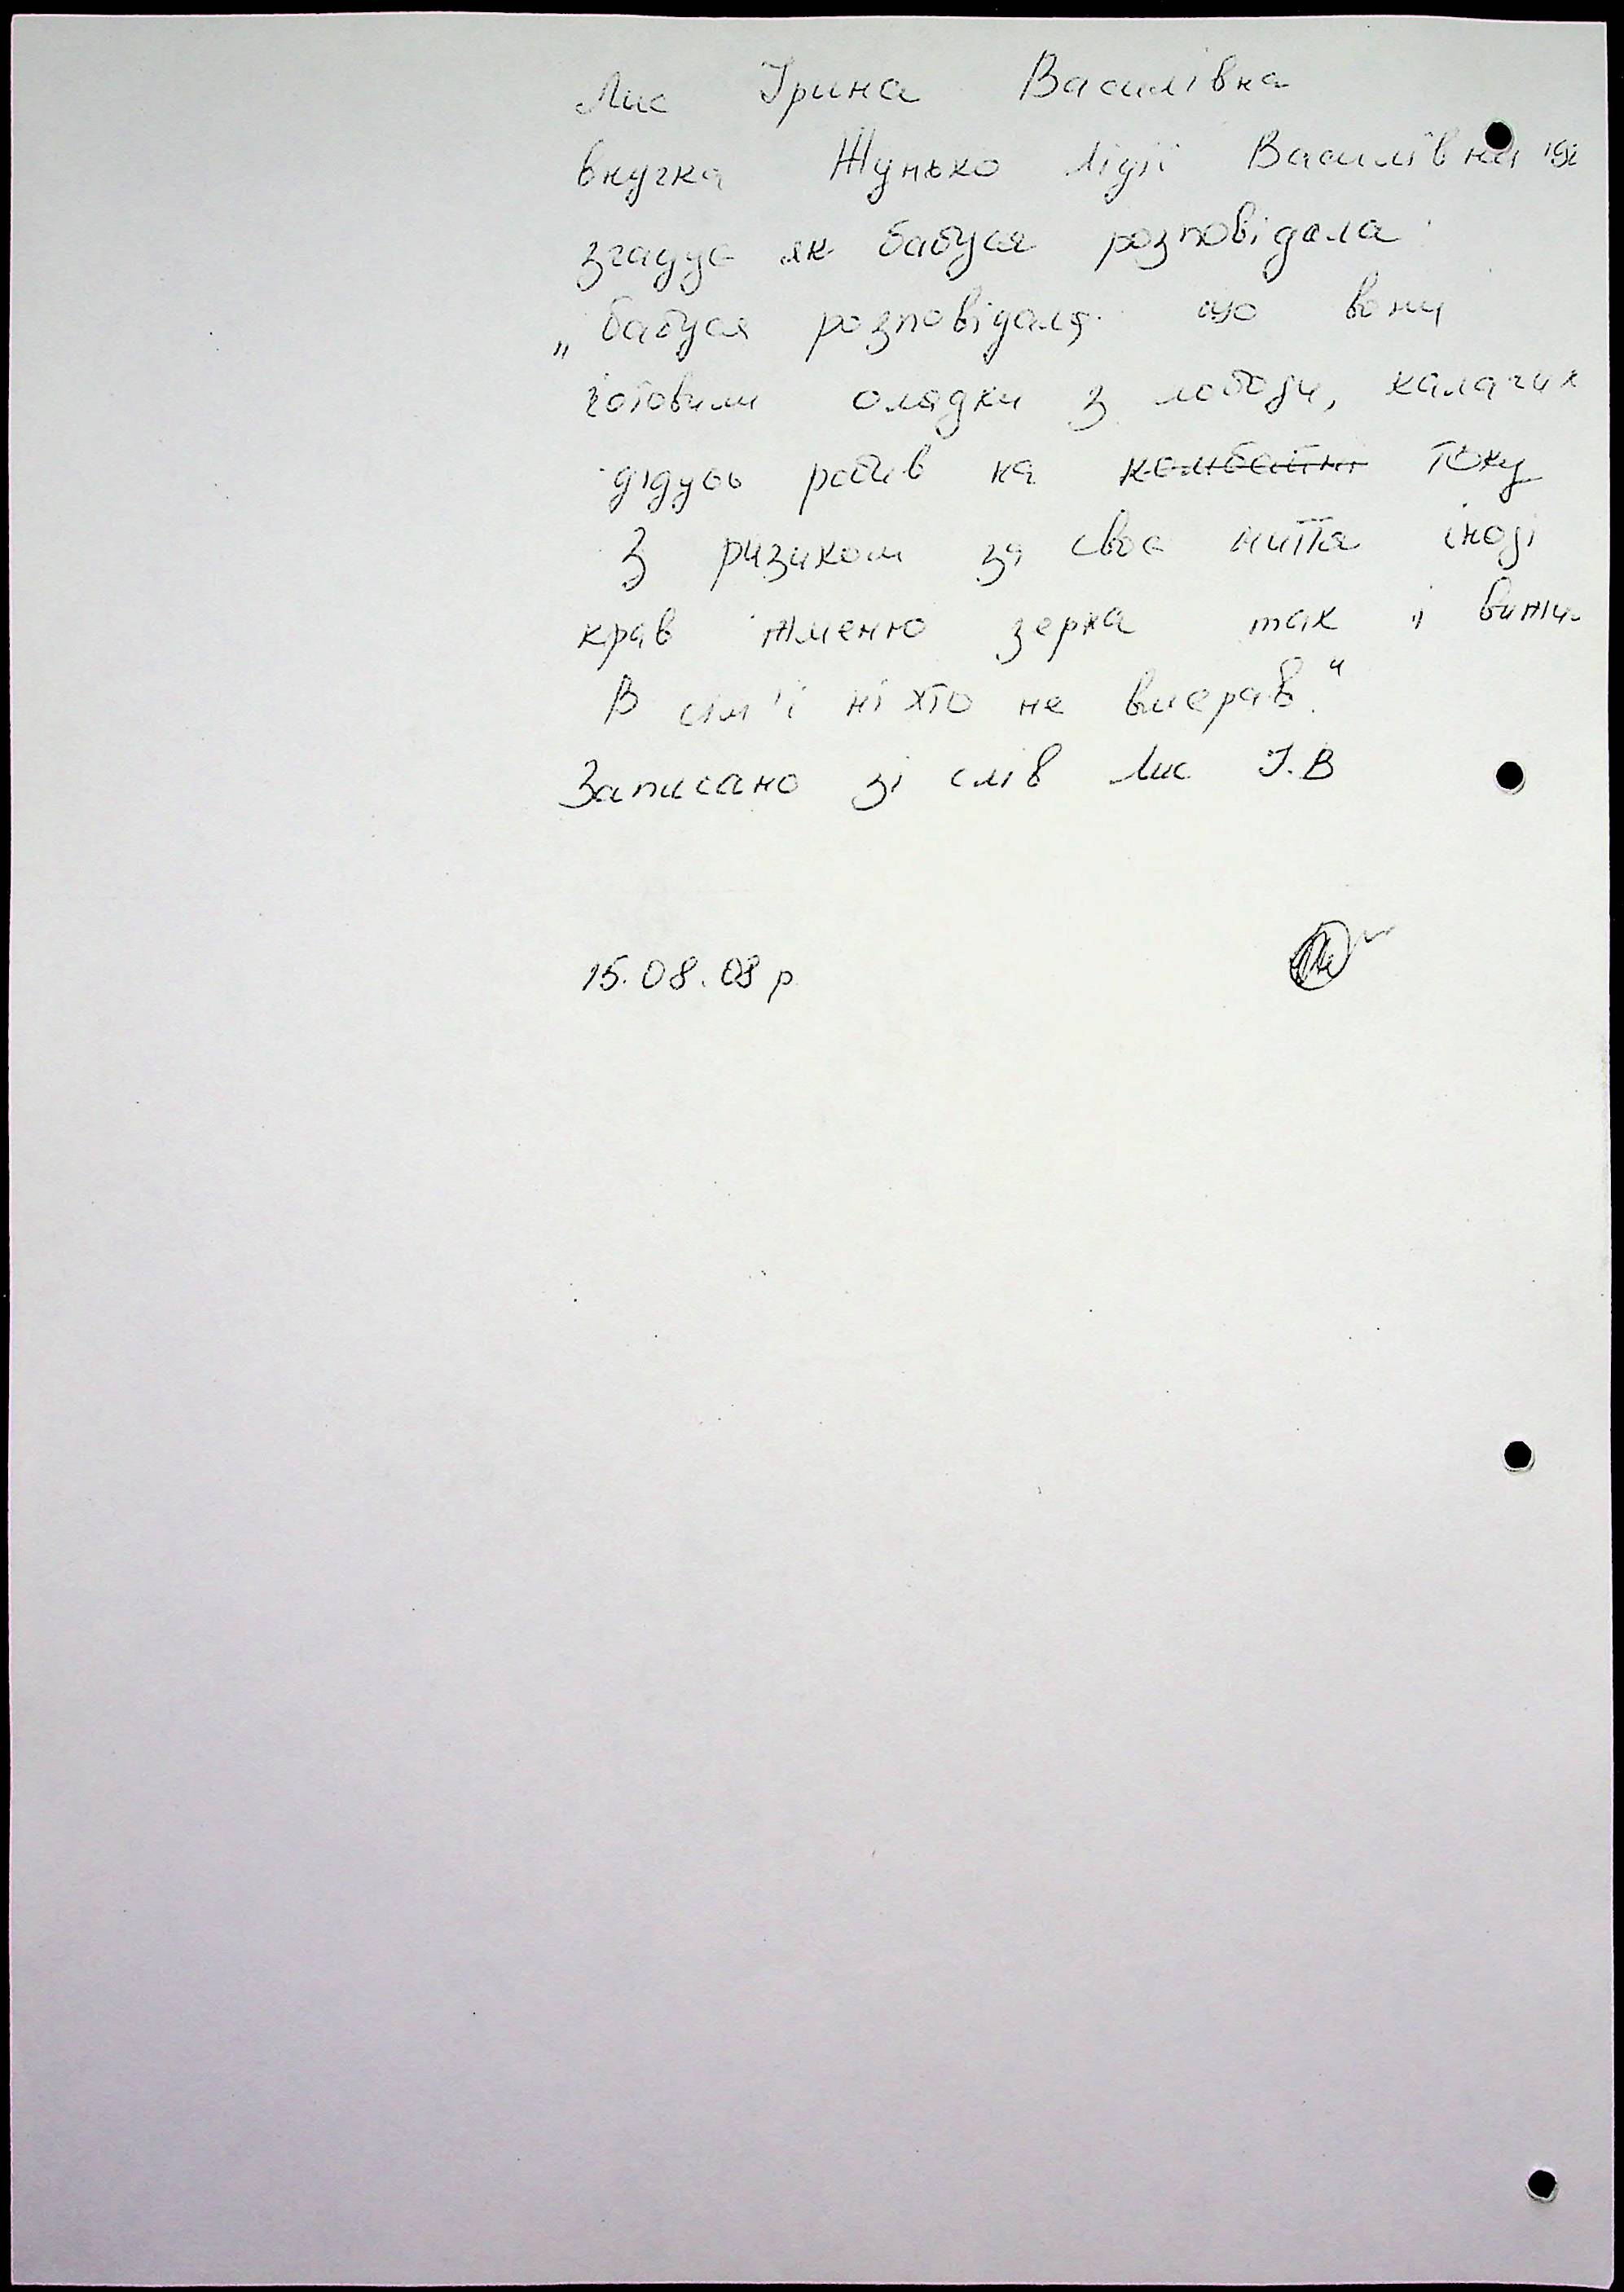 Лис Ірина Василівна
внучка Жунько Лідії Василівни
згадує як бабуся розповідала
„ бабуся розповідала що вони
готовили оладки з лободи, калачик
дідусь робив на комбайні току
З ризиком за своє життя іноді
крав жменю зерна так і вижи-
В сім'ї ніхто не вмерав."
Записано зі слів Лис І.В
15.08.08 р